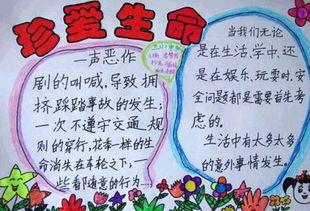 珍爱生命
一声恶作
剧的叫喊,导致拥
挤踩踏事故的发生;
一次不遵守交通规
则的穿行,花季一样的生
命消失在车轮之下;一
些看似随意的行为……
当我们无论
是在生活,学中,还
是在娱乐、玩耍时,安
全问题都是需要首先考
虑的。
生活中有太多太多
的意外事情发生。